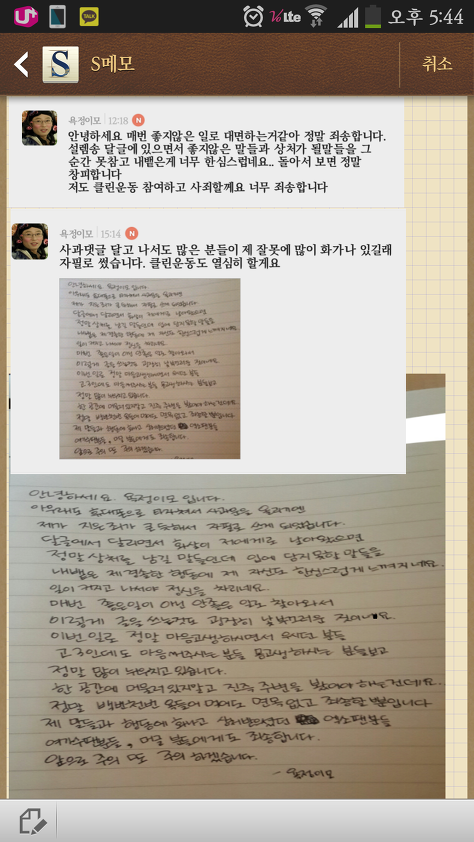 U+
TALK
LTE
오후 5:44
S
S메모
취소
욕정이모 12:18 N
안녕하세요 매번 좋지않은 일로 대면하는거같아 정말 죄송합니다.
설렘송 달글에 있으면서 좋지않은 말들과 상처가 될말들을 그
순간 못참고 내뱉은게 너무 한심스럽네요.. 돌아서 보면 정말
창피합니다
저도 클린운동 참여하고 사죄할께요 너무 죄송합니다
욕정이모 15:14 N
사과댓글 달고 나서도 많은 분들이 제 잘못에 많이 화가나 있길래
자필로 썼습니다. 클린운동도 열심히 할게요
안녕하세요. 욕정이모 입니다.
아무래도 휴대폰으로 타자쳐서 사과문을 올리기엔
제가 지은죄가 큰듯해서 자필로 쓰게 되었습니다.
달글에서 달리면서 화살이 저에게로 날아왔으면
정말 상처로 남길 말들인데 입에 담지못할 말들을
내뱉은 제 경솔한 행동에 제 자신도 한심스럽게 느껴지네요.
일이 커지고 나서야 정신을 차리네요.
매번 좋은일이 아닌 안좋은 일로 찾아와서
이렇게 글을 쓰는것도 굉장히 낯부끄러운 짓이네요.
이번 일로 정말 마음고생하시면서 우시던 분들
고3인데도 마음써주시는 분들 몸고생하시는 분들보고
정말 많이 뉘우치고 있습니다.
한 공간에 머물러 있지말고 진즉 주변을 봤어야 하는건데요..
정말 백번천번 욕들어 먹어도 면목없고 죄송한 뿐입니다
제 말들과 행동에 화나고 상처받으셨던 엑소팬분들
여기수팬분들, 여덟 분들에게도 죄송합니다.
앞으로 주의 또 주의 하겠습니다.
- 욕정이모